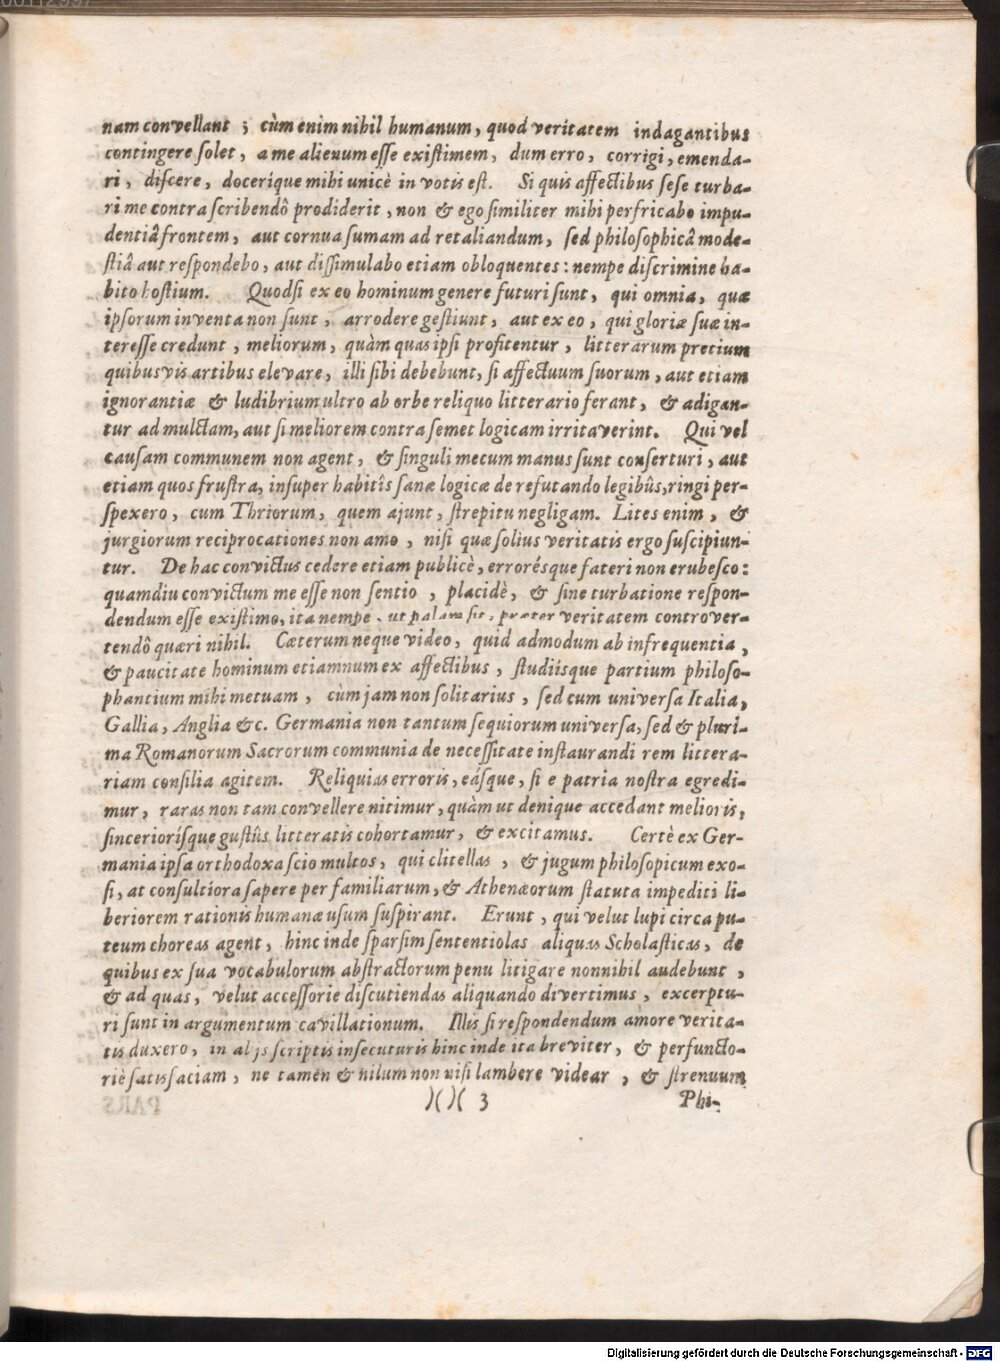 nam convellant ; cùm enim nihil humanum, quod veritatem indagantibus
contingere solet, a me alienum esse existimem, dum erro, corrigi, emenda-
ri, discere, docerique mihi unicè in votis est. Si quis affectibus sese turba-
ri me contra scribendô prodiderit, non & ego similiter mihi perfricabo impu-
dentiâ frontem, aut cornua sumam ad retaliandum, sed philosophicâ mode-
stiâ aut respondebo, aut dissimulabo etiam obloquentes : nempe discrimine ha-
bito hostium. Quodsi ex eo hominum genere futuri sunt, qui omnia, quæ
ipsorum inventa non sunt, arrodere gestiunt, aut ex eo, qui gloriæ suæ in-
teresse credunt, meliorum, quàm quas ipsi profitentur, litterarum pretium
quibusvis artibus elevare, illi sibi debebunt, si affectuum suorum, aut etiam
ignorantiæ & ludibrium ultro ab orbe reliquo litterario ferant, & adigan-
tur ad mulctam, aut si meliorem contra semet logicam irritaverint. Qui vel
causam communem non agent, & singuli mecum manus sunt conserturi, aut
etiam quos frustra, insuper habitîs sanæ logicæ de refutando legibûs, ringi per-
spexero, cum Thriorum, quem ajunt, strepitu negligam. Lites enim, &
jurgiorum reciprocationes non amo, nisi quæ solius veritatis ergo suscipiun-
tur. De hac convictus cedere etiam publicè, errorésque fateri non erubesco:
quamdiu convictum me esse non sentio, placidè, & sine turbatione respon-
dendum esse existimo, ita nempe, ut palam sit, præter veritatem controver-
tendô quæri nihil. Cæterum neque video, quid admodum ab infrequentia,
& paucitate hominum etiamnum ex affectibus, studiísque partium philoso-
phantium mihi metuam, cùm jam non solitarius, sed cum universa Italia,
Gallia, Anglia &c. Germania non tantum sequiorum universa, sed & pluri-
ma Romanorum Sacrorum communia de necessitate instaurandi rem littera-
riam consilia agitem. Reliquias erroris, eásque, si e patria nostra egredi-
mur, raras non tam convellere nitimur, quàm ut denique accedant melioris,
sinceriorísque gustûs litteratis cohortamur, & excitamus. Certè ex Ger-
mania ipsa orthodoxa scio multos, qui clitellas, & jugum philosopicum exo-
si, at consultiora sapere per familiarum, & Athenæorum statuta impediti li-
beriorem rationis humanæ usum suspirant. Erunt, qui velut lupi circa pu-
teum choreas agent, hinc inde sparsim sententiolas aliquas Scholasticas, de
quibus ex sua vocabulorum abstractorum penu litigare nonnihil audebunt,
& ad quas, velut accessorie discutiendas aliquando divertimus, excerptu-
ri sunt in argumentum cavillationum. Illis si respondendum amore verita-
tis duxero, in alijs scriptis insecuturis hinc inde ita breviter, & perfuncto-
riè satisfaciam, ne tamen & nilum non nisi lambere videar, & strenuum
)( )( 3 Phi-
Digitalisierung gefördert durch die Deutsche Forschungsgemeinschaft - DFG